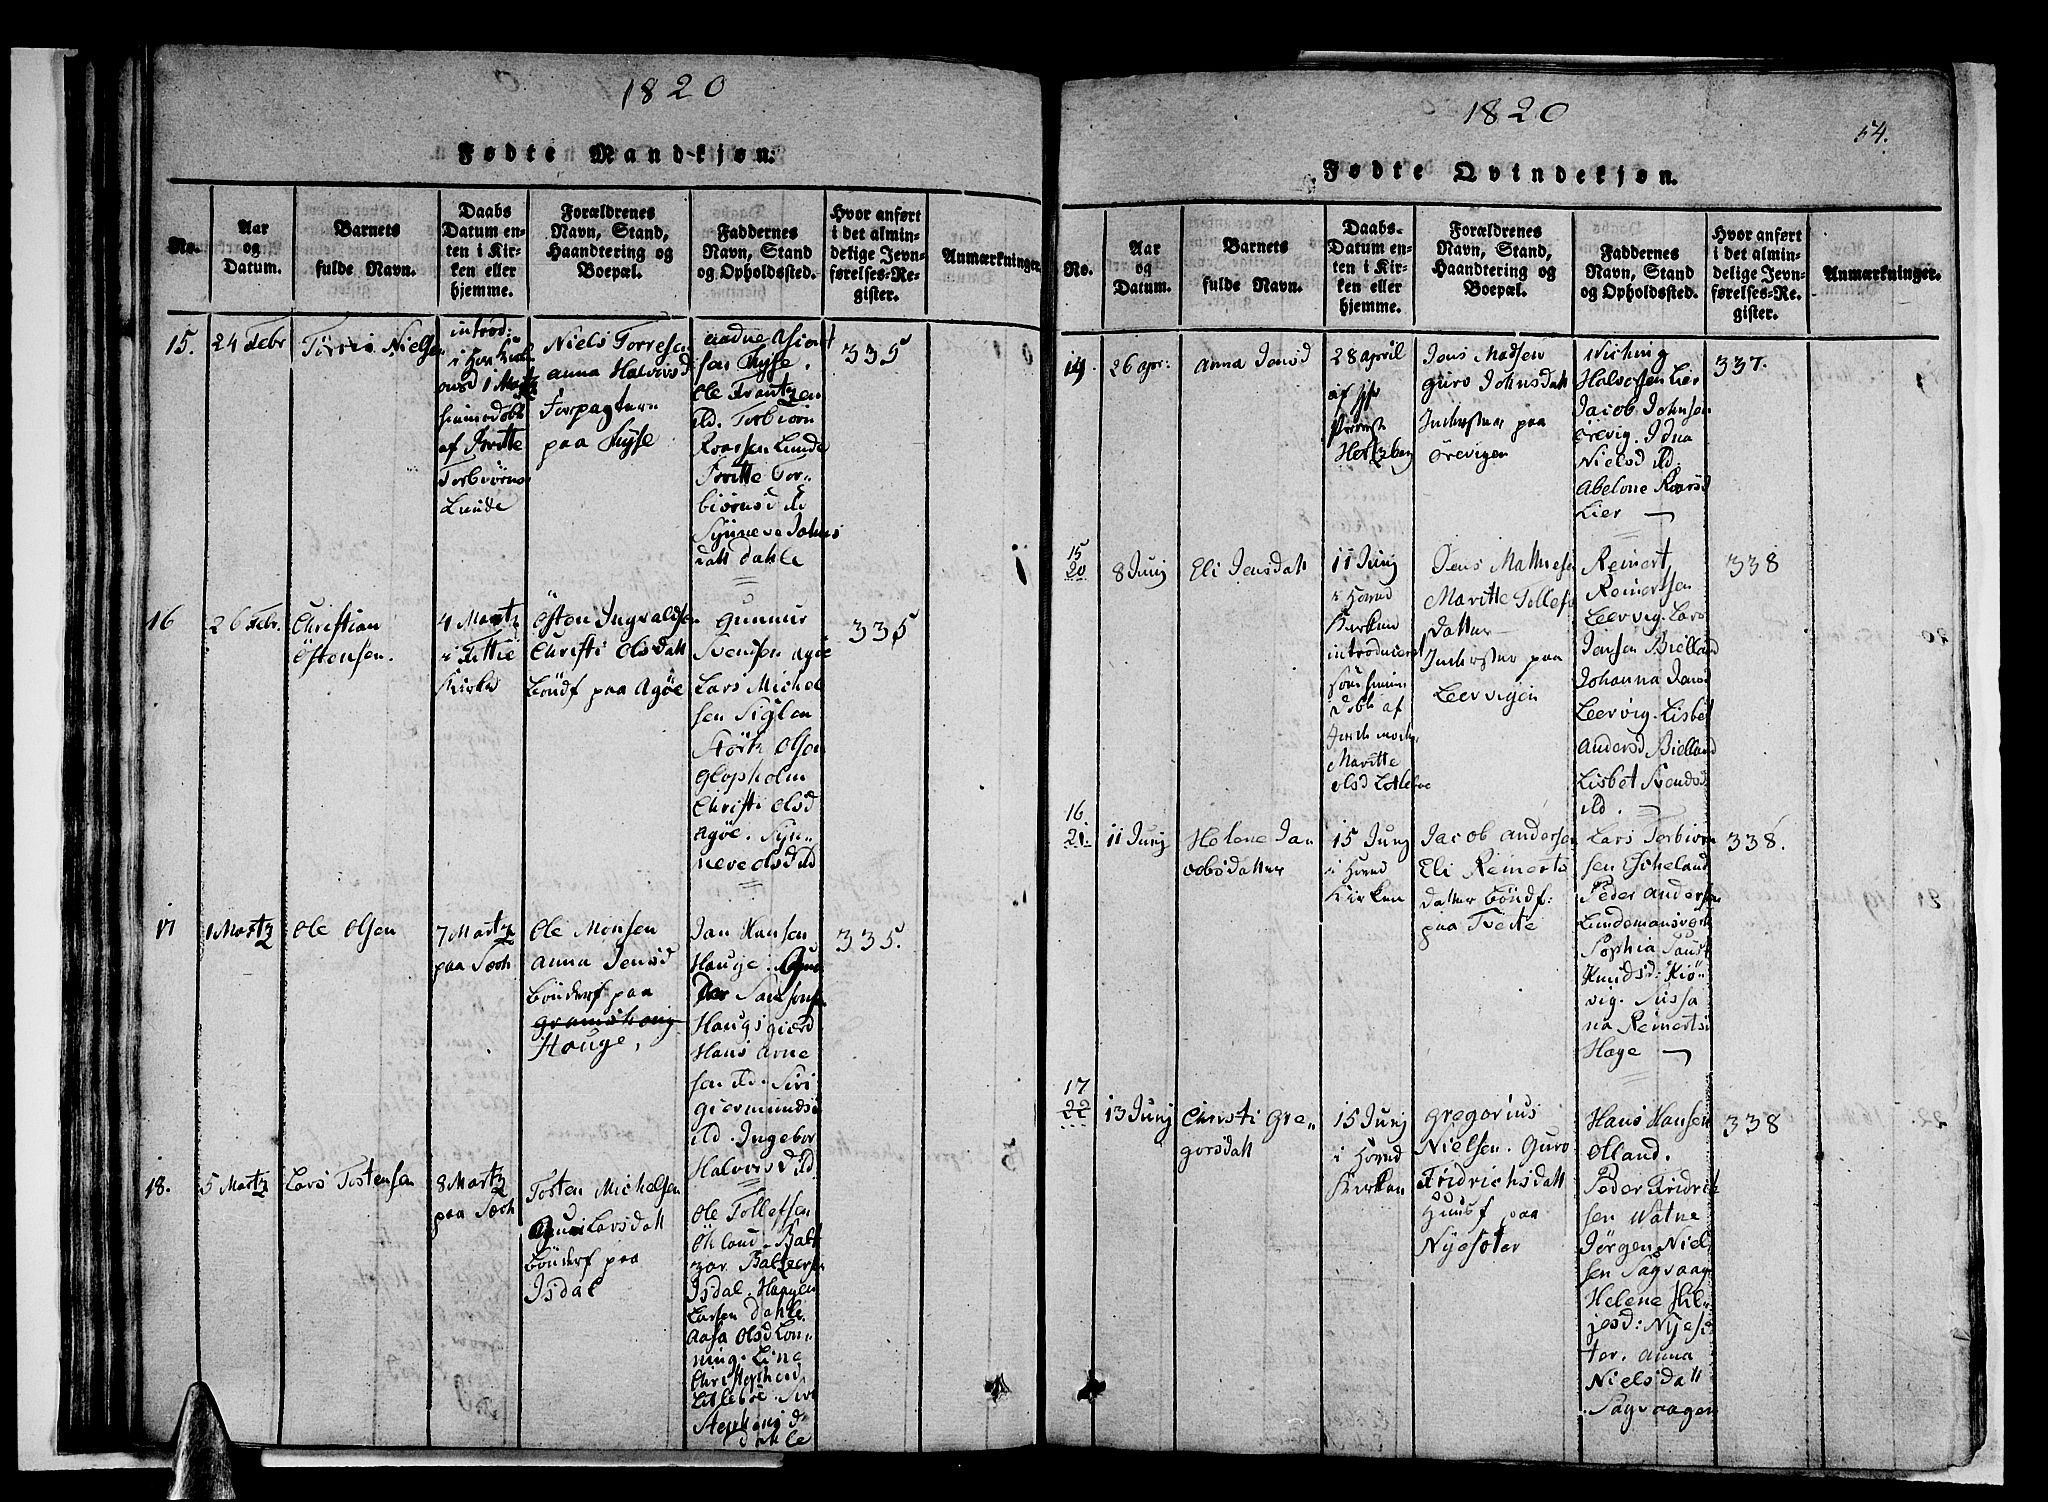 1820
Fødte Mandkjøn.
No.
Aar
og
Datum.
Barnets
fulde Navn.
Daabs
Datum en-
ten i Kir-
ken eller
hjemme.
Forældrenes
Navn, Stand,
Haandtering og
Boepæl.
Faddernes
Navn, Stand
og Opholdssted.
Hvor anført
i det almin-
delige Jevn-
førelses-Re-
gister.
Anmærkninger.
15.
24 Febr
Törris Nielsen
introd:
i
1 Martz
hiemedöbt
af Britte
Torbiörns
Lunde
Niels Torresen
Anna Halvorsd
Forpagtere
paa Hyse
Aadne Asio
sen Hyse.
Ole Frantzen
ild. Torbiørn
Roarsen Lunde
Britte Tor-
biörnsd ild
Synneve Johns
datt Dahle
335
16
26 Febr.
Christian
Östensen.
4 Martz
i Fittie
Kirke
Östen Ingvaldsen
Christi Olsdatt
Böndf paa Agöe
Gunnar
Svendsen Agöe
Lars Michel
sen Siglen
Störk Olsen
Glopholm
Christi Olsd
Agöe. Syn-
neve Olsd ild
335
17
1 Martz
Ole Olsen
7 Martz
paa Tech
Ole Monsen
Anna Jensd
Bönderf paa
Gramshoug
Houge,
Jan Hansen
Houge.
Samsonsen
Hougsgierd
Hans Arne
sen ild. Siri
Giermundsd
ild. Ingebor
Halvorsd ild
335.
18.
5 Martz
Lars Tostensen
8 Martz
paa Tech
Tosten Michelsen
Guri Larsdatt
Bönderf paa
Isdal
Ole Tollefsen
Ökland. Balt
zar. Baltzersen
Isdal.
Larsen Dahle
Aasa Olsd Lon-
ning. Line
Christophersd
Litleböe. Siri
Stephensd
Dahle
1820
54.
Fødte Qvindekjøn.
No.
Aar
og
Datum.
Barnets
fulde Navn.
Daabs-
Datum en-
ten i Kir-
ken eller
hjemme.
Forældrenes
Navn, Stand,
Haandtering og
Boepæl.
Faddernes
Navn, Stand
og Opholdssted.
Hvor anført
i det almin-
delige Jevn-
førelses-Re-
gister.
Anmærkninger.
14
26 apr:
Anna Jensd
28 april
af Hr
Provst
Hertzberg
Jens Madsen
Guro Johnsdatt
Inderster paa
Örevigen
Wiching
Halvorsen Lier
Jacob Johnsen
Örevig. Idna
Nielsd ild.
Abelone Roarsd
Lier —
337.
15
20
8 Junj
Eli Jensdatt
11 Junj
i Hoved
Kirken
introduceret
som hiem
döbt af
Maritte
Olsd Litleböe
Jens Mathiesen
Maritte Tollefs
datter
Inderster paa
Leervigen
Reinert
Reinertsen
Leervig. Lars
Jensen Bielland
Johanna Jensd
Leervig. Lisbet
Andersd Bielland
Lisbet Svendsd
ild.
338
16
21.
11 Junj
Helene Ja
cobsdatter
15 Junj
i Hoved
Kirken
Jacob Andersen
Eli Reinerts
datter Böndf:
paa Tveite
Lars Torbiörn
sen Eskeland
Peder Andersen
Lundemansverk
Sophia Faust
Knudsd: Kiö-
vig. Sussa
na Reinertsd
Hage —
338.
17
22
13 Junj
Christi Gre-
gorsdatt
15 Junj
i Hoved
Kirken
Gregorius
Nielsen. Guro
Fridrichsdatt
Huusf paa
Nyesöter
Hans Hansen
Olland.
Peder Fridrik
sen Watne
Jörgen Niel
sen Sagvaag
Helene Hil-
jesd: Nyesö
ter. Anna
Nielsdatt
Sagvaagen
338